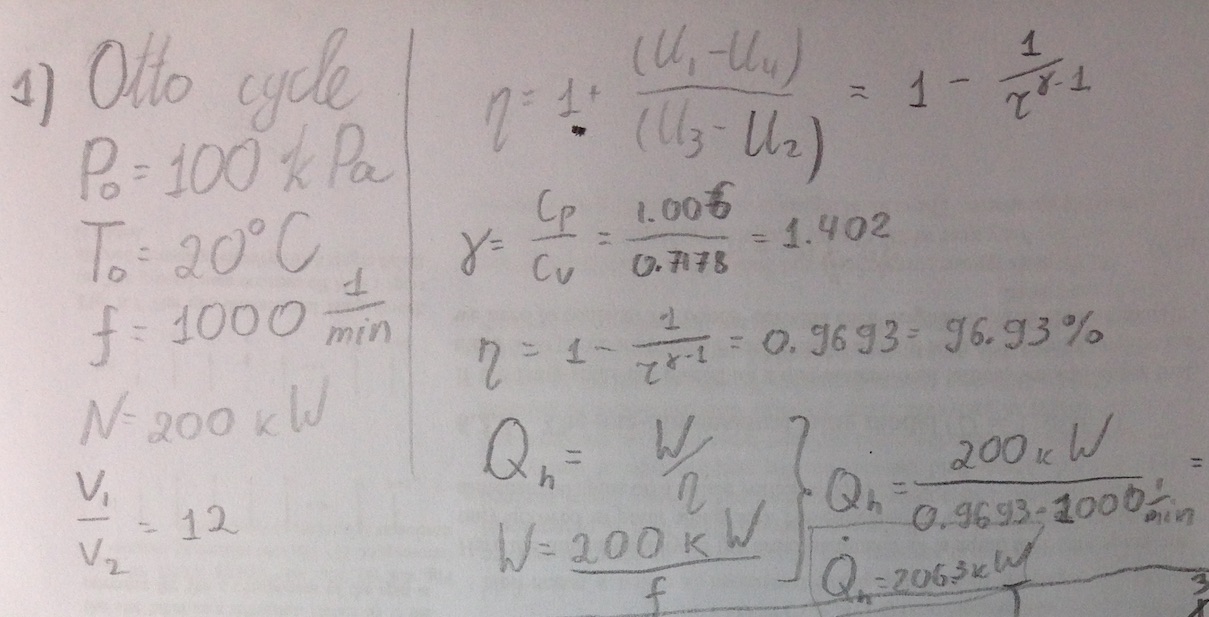 1) Otto cycle
P₀ = 100 kPa
T₀ = 20°C
f = 1000 1/min
N = 200 kW
V₁/V₂ = 12
η = 1 + (U₁ - U₄)/(U₃ - U₂) = 1 - 1/τ^(γ-1)
γ = Cp/Cv = 1.006/0.7178 = 1.402
η = 1 - 1/τ^(γ-1) = 0.9693 = 96.93%
Qₕ = W/η
W = 200 kW/f
Q̇ₕ = 200 kW/(0.9693 · 1000 1/min) =
Q̇ₕ = 206.3 kW